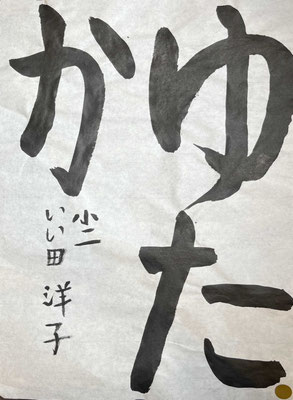 ゆた
か
小二
いい田 洋子